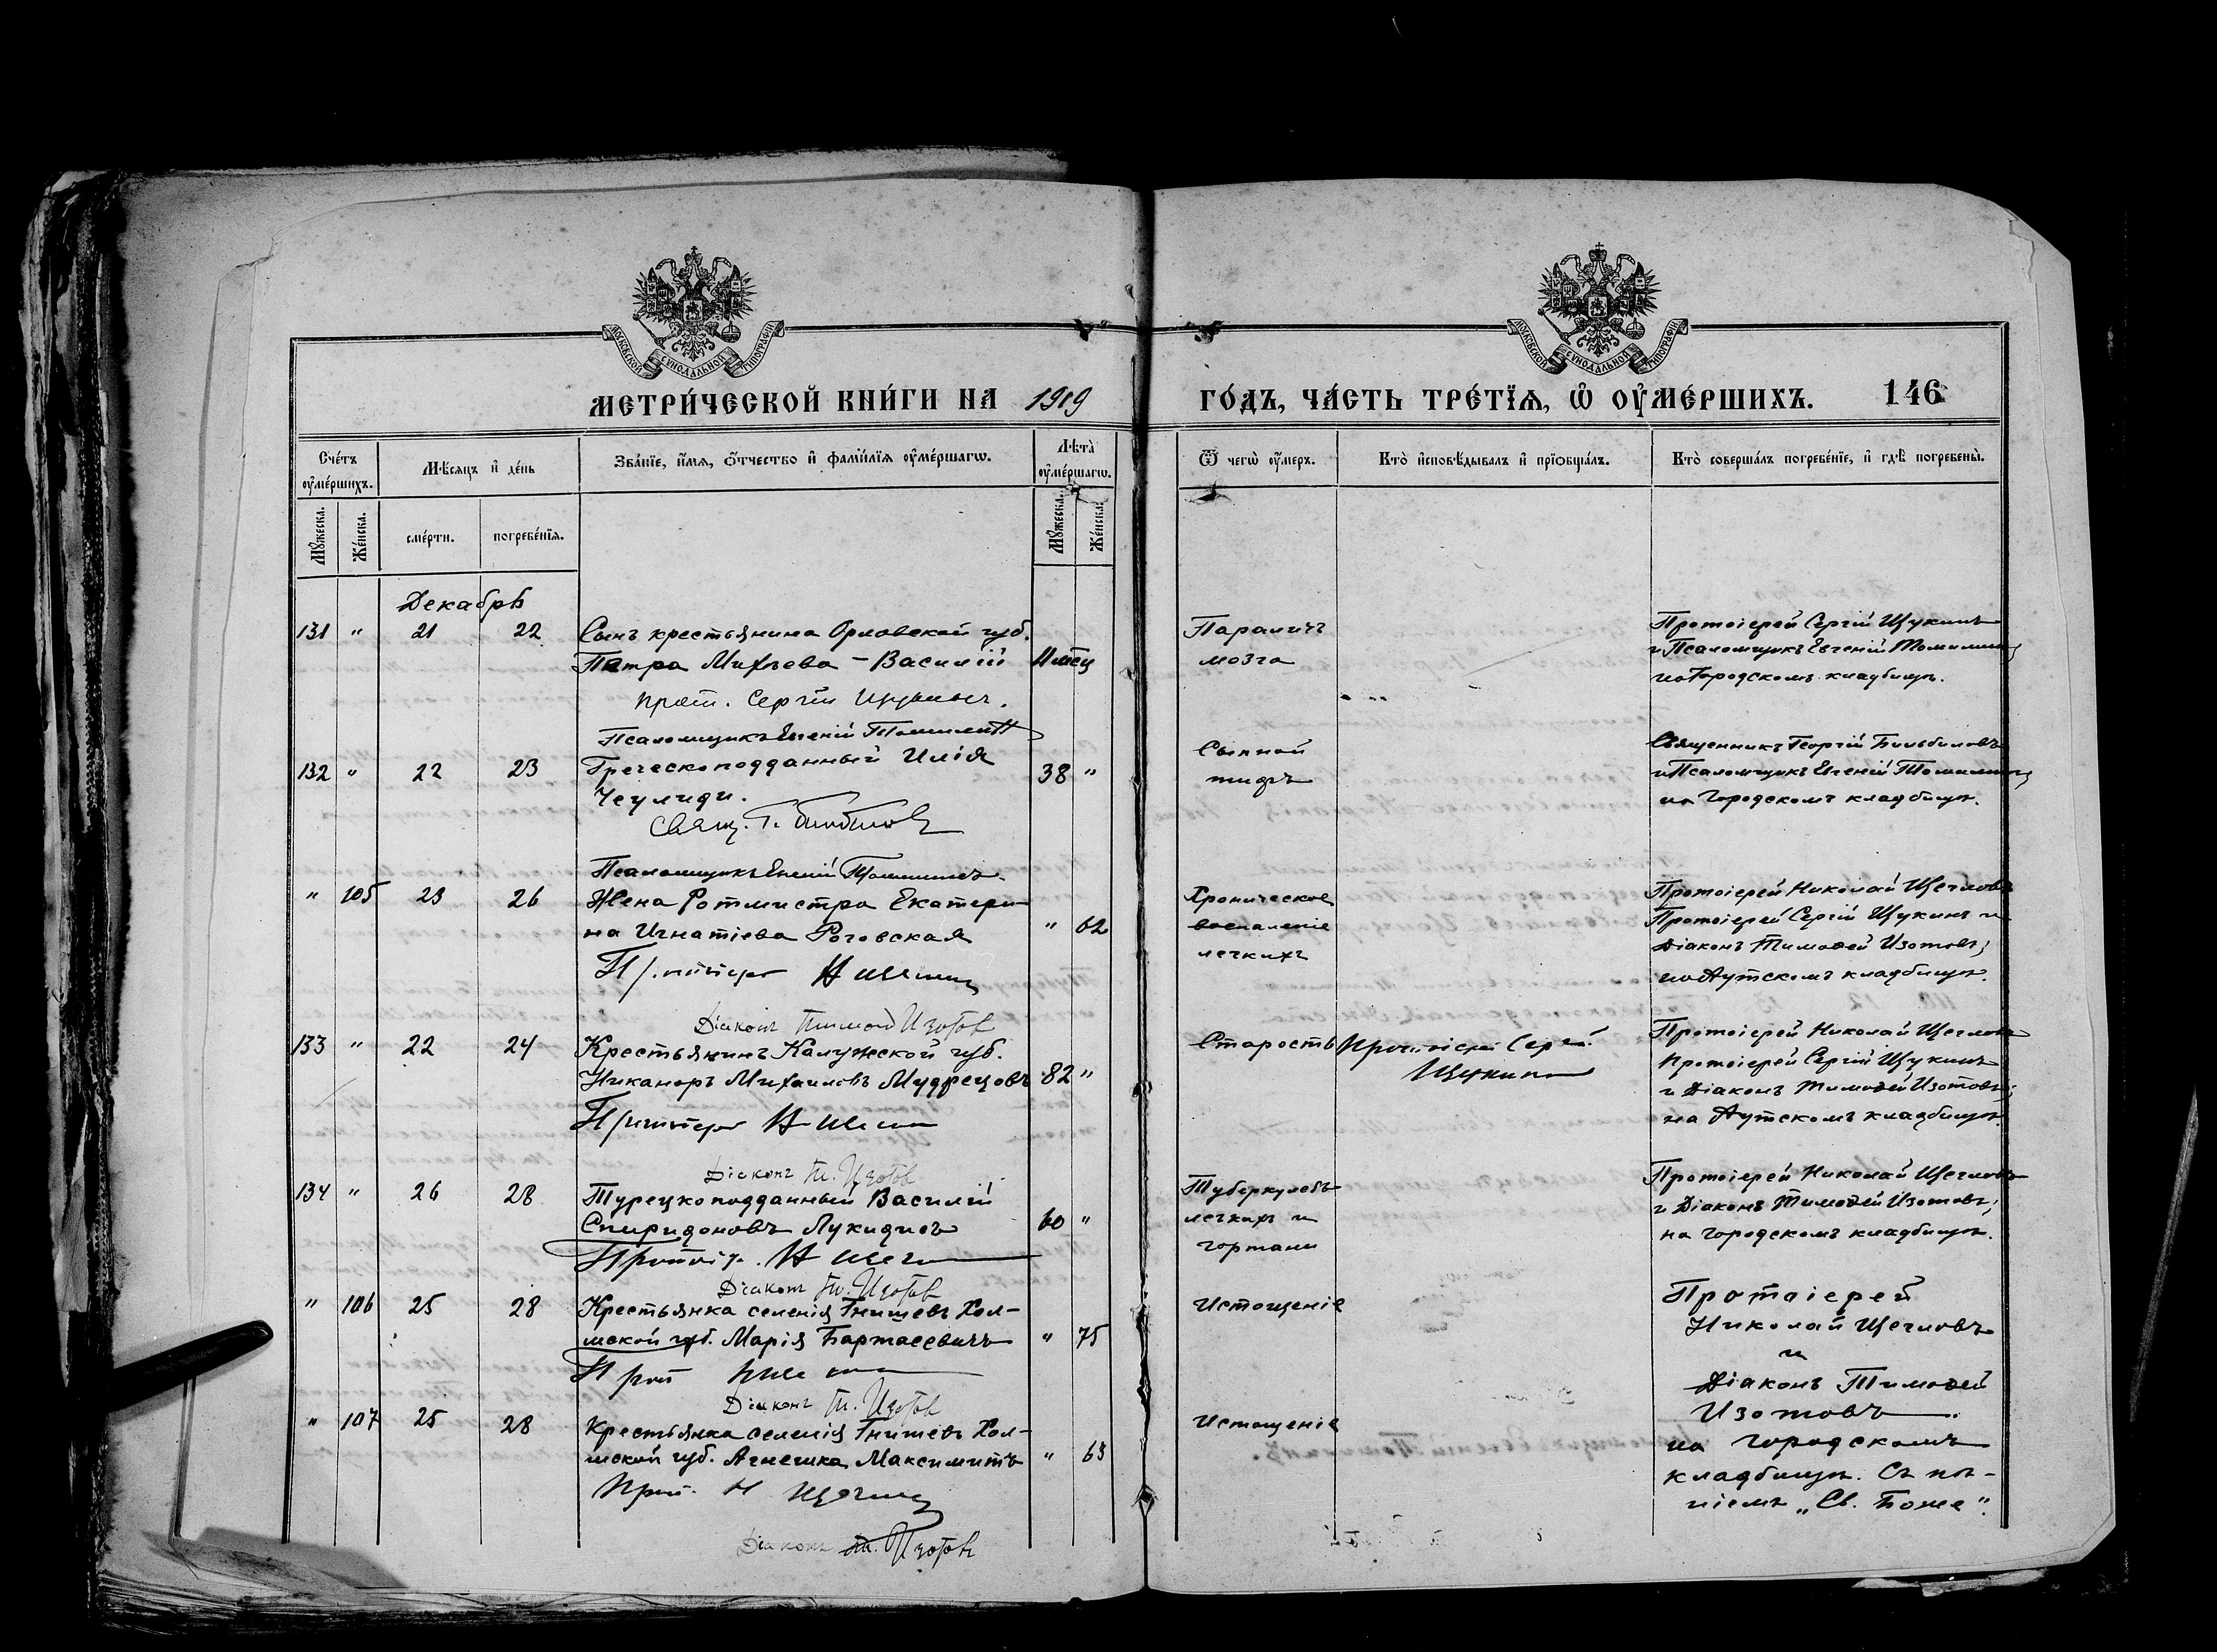 МОСКОВСКОЙ СУНОДАЛЬНОЙ ТИПОГРАФІИ
МОСКОВСКОЙ СУНОДАЛЬНОЙ ТИПОГРАФІИ
МЕТРИ́ЧЕСКОЙ КНИ́ГИ НА 1919
ГО́ДЪ, ЧА́СТЬ ТРЕ́ТЇѦ, Ѡ҆ ОУ҆МЕ́РШИХЪ. 146
Сче́тъ оу҆ме́ршихъ.
Мѣ́сѧцъ и҆ де́нь
Зва́нїе, и҆́мѧ, ѻ҆́тчество и҆ фами́лїѧ оу҆ме́ршагѡ.
Лѣ́та̀ оу҆ме́ршагѡ.
Ѿ чегѡ̀ оу҆́меръ.
Кто̀ и҆сповѣ́дывалъ и҆ прїѡбща́лъ.
Кто̀ соверша́лъ погребе́нїе, и҆ гдѣ̀ погребены̀.
Мꙋ́жеска.
Же́нска.
сме́рти.
погребе́нїѧ.
Мꙋ́жеска.
Же́нска.
Декабрь
131 " 21 22
Сынъ крестьянина Орловской губ.
Петра Михѣева – Василій
Прот. Сергій Щукинъ.
Псаломщикъ Евгеній Томилинъ
Параличъ
мозга
Протоіерей Сергій Щукинъ
и Псаломщикъ Евгеній Томилинъ;
на Городскомъ кладбищѣ.
132 " 22 23
Греческоподданный Илія
Чеулиди. 38 "
Свящ. Г. Бильбиловъ
Псаломщикъ Евгеній Томилинъ.
Сыпной
тифъ
Священникъ Георгій Бильбиловъ
и Псаломщикъ Евгеній Томилинъ;
на Городскомъ кладбищѣ.
" 105 23 26
Жена Ротмистра Екатери-
на Игнатіева Роговская " 62
Протоіерей Н Щегловъ
Діаконъ Тимофей Изотов
Хроническое
воспаленіе
легкихъ
Протоіерей Николай Щегловъ
Протоіерей Сергій Щукинъ и
Діаконъ Тимоѳей Изотовъ;
на Аутскомъ кладбищѣ.
133 " 22 24
Крестьянинъ Калужской губ.
Никаноръ Михаиловъ Мудрецовъ 82 "
Протоіерей Н Щегловъ
Діаконъ Т. Изотов
Старость
Протоіерей Сергій
Щукинъ
Протоіерей Николай Щегловъ
Протоіерей Сергій Щукинъ
и Діаконъ Тимоѳей Изотовъ;
на Аутскомъ кладбищѣ.
134 " 26 28
Турецкоподданный Василій
Спиридоновъ Лукидисъ 60 "
Протоі. Н Щегловъ
Діаконъ Т. Изотов
Туберкулезъ
легкихъ и
гортани
Протоіерей Николай Щегловъ
и Діаконъ Тимоѳей Изотовъ;
на городскомъ кладбищѣ.
" 106 25 28
Крестьянка селенія Гнишевъ Хол-
мской губ. Марія Бартасевичъ " 75
Прот Н Щегловъ
Діаконъ Т. Изотов
Истощеніе
Протоіерей
Николай Щегловъ
и
Діаконъ Тимоѳей
Изотовъ.
на городскомъ
кладбищѣ. Съ пѣ-
ніемъ „Св. Боже".
" 107 25 28
Крестьянка селенія Гнишевъ Хол-
мской губ. Агнешка Максимитъ " 65
Прот. Н Щегловъ
Діаконъ Т. Изотовъ
Истощеніе